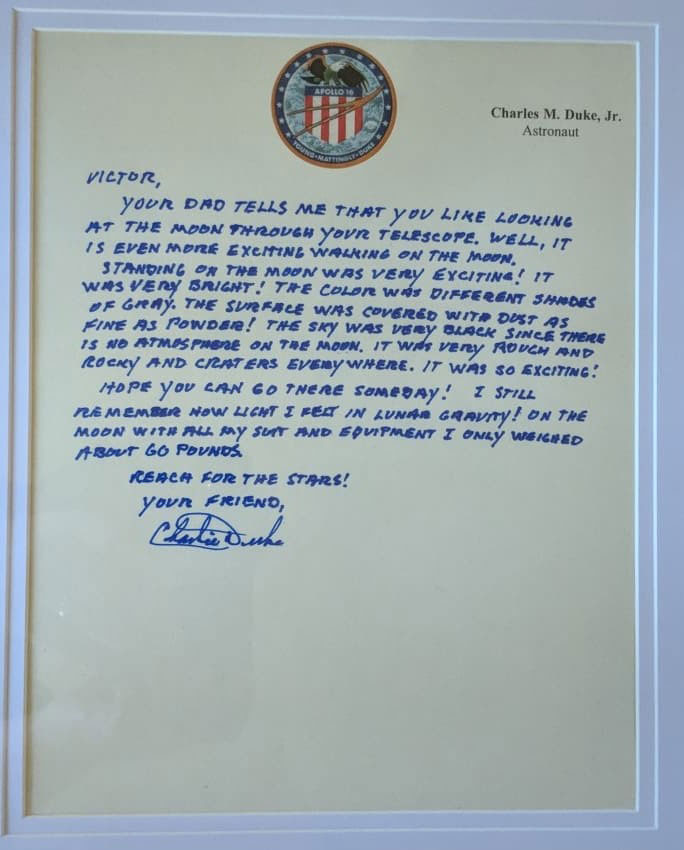 APOLLO 16
YOUNG•MATTINGLY•DUKE
Charles M. Duke, Jr.
Astronaut
VICTOR,
YOUR DAD TELLS ME THAT YOU LIKE LOOKING
AT THE MOON THROUGH YOUR TELESCOPE. WELL, IT
IS EVEN MORE EXCITING WALKING ON THE MOON.
STANDING ON THE MOON WAS VERY EXCITING! IT
WAS VERY BRIGHT! THE COLOR WAS DIFFERENT SHADES
OF GRAY. THE SURFACE WAS COVERED WITH DUST AS
FINE AS POWDER! THE SKY WAS VERY BLACK SINCE THERE
IS NO ATMOSPHERE ON THE MOON. IT WAS VERY ROUGH AND
ROCKY AND CRATERS EVERYWHERE. IT WAS SO EXCITING!
HOPE YOU CAN GO THERE SOMEDAY! I STILL
REMEMBER HOW LIGHT I FELT IN LUNAR GRAVITY! ON THE
MOON WITH ALL MY SUIT AND EQUIPMENT I ONLY WEIGHED
ABOUT 60 POUNDS.
REACH FOR THE STARS!
YOUR FRIEND,
Charlie Duke